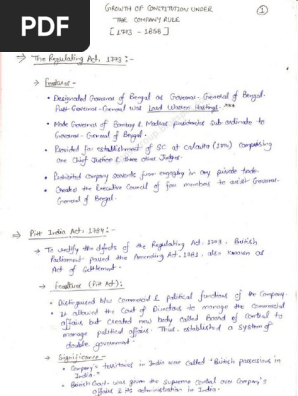 PDF
GROWTH OF CONSTITUTION UNDER
THE COMPANY RULE
[1773 - 1858]
1
The Regulating Act, 1773 :-
Features -
Designated Governor of Bengal as Governor-General of Bengal.
First Governor-General was Lord Warren Hastings.
Made Governor of Bombay & Madras presidencies sub-ordinate to
Governor-General of Bengal.
Provided for establishment of SC at Calcutta (1774) comprising
one Chief Justice & three other Judges.
Prohibited company servants from engaging in any private trade.
Created the Executive Council of four members to assist Governor-
General of Bengal.
Pitt India Act, 1784 :-
To rectify the defects of the Regulating Act, 1773, British
Parliament passed the Amending Act, 1781, also known as
Act of Settlement.
Features (Pitt Act):
Distinguised b/w Commercial & political functions of the Company.
It allowed the Court of Directors to manage the commercial
affairs but created new body called Board of Control to
manage political affairs. Thus, established a system of
double government.
Significance -
Company's territories in India was called "British possessions in
India."
British Govt. was given the supreme control over Company's
affairs & its administration in India.